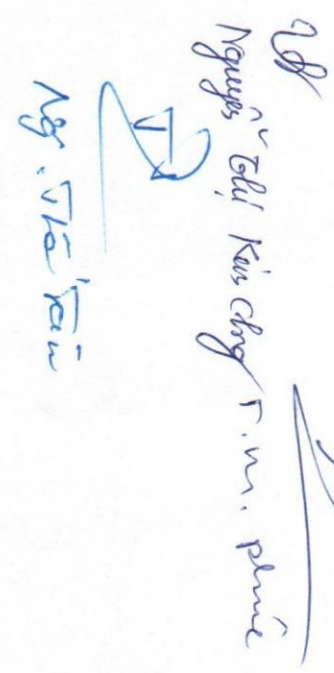 Nguyễn Thị Kim Chung
T.M. Phúc
Ng. Thế Tân